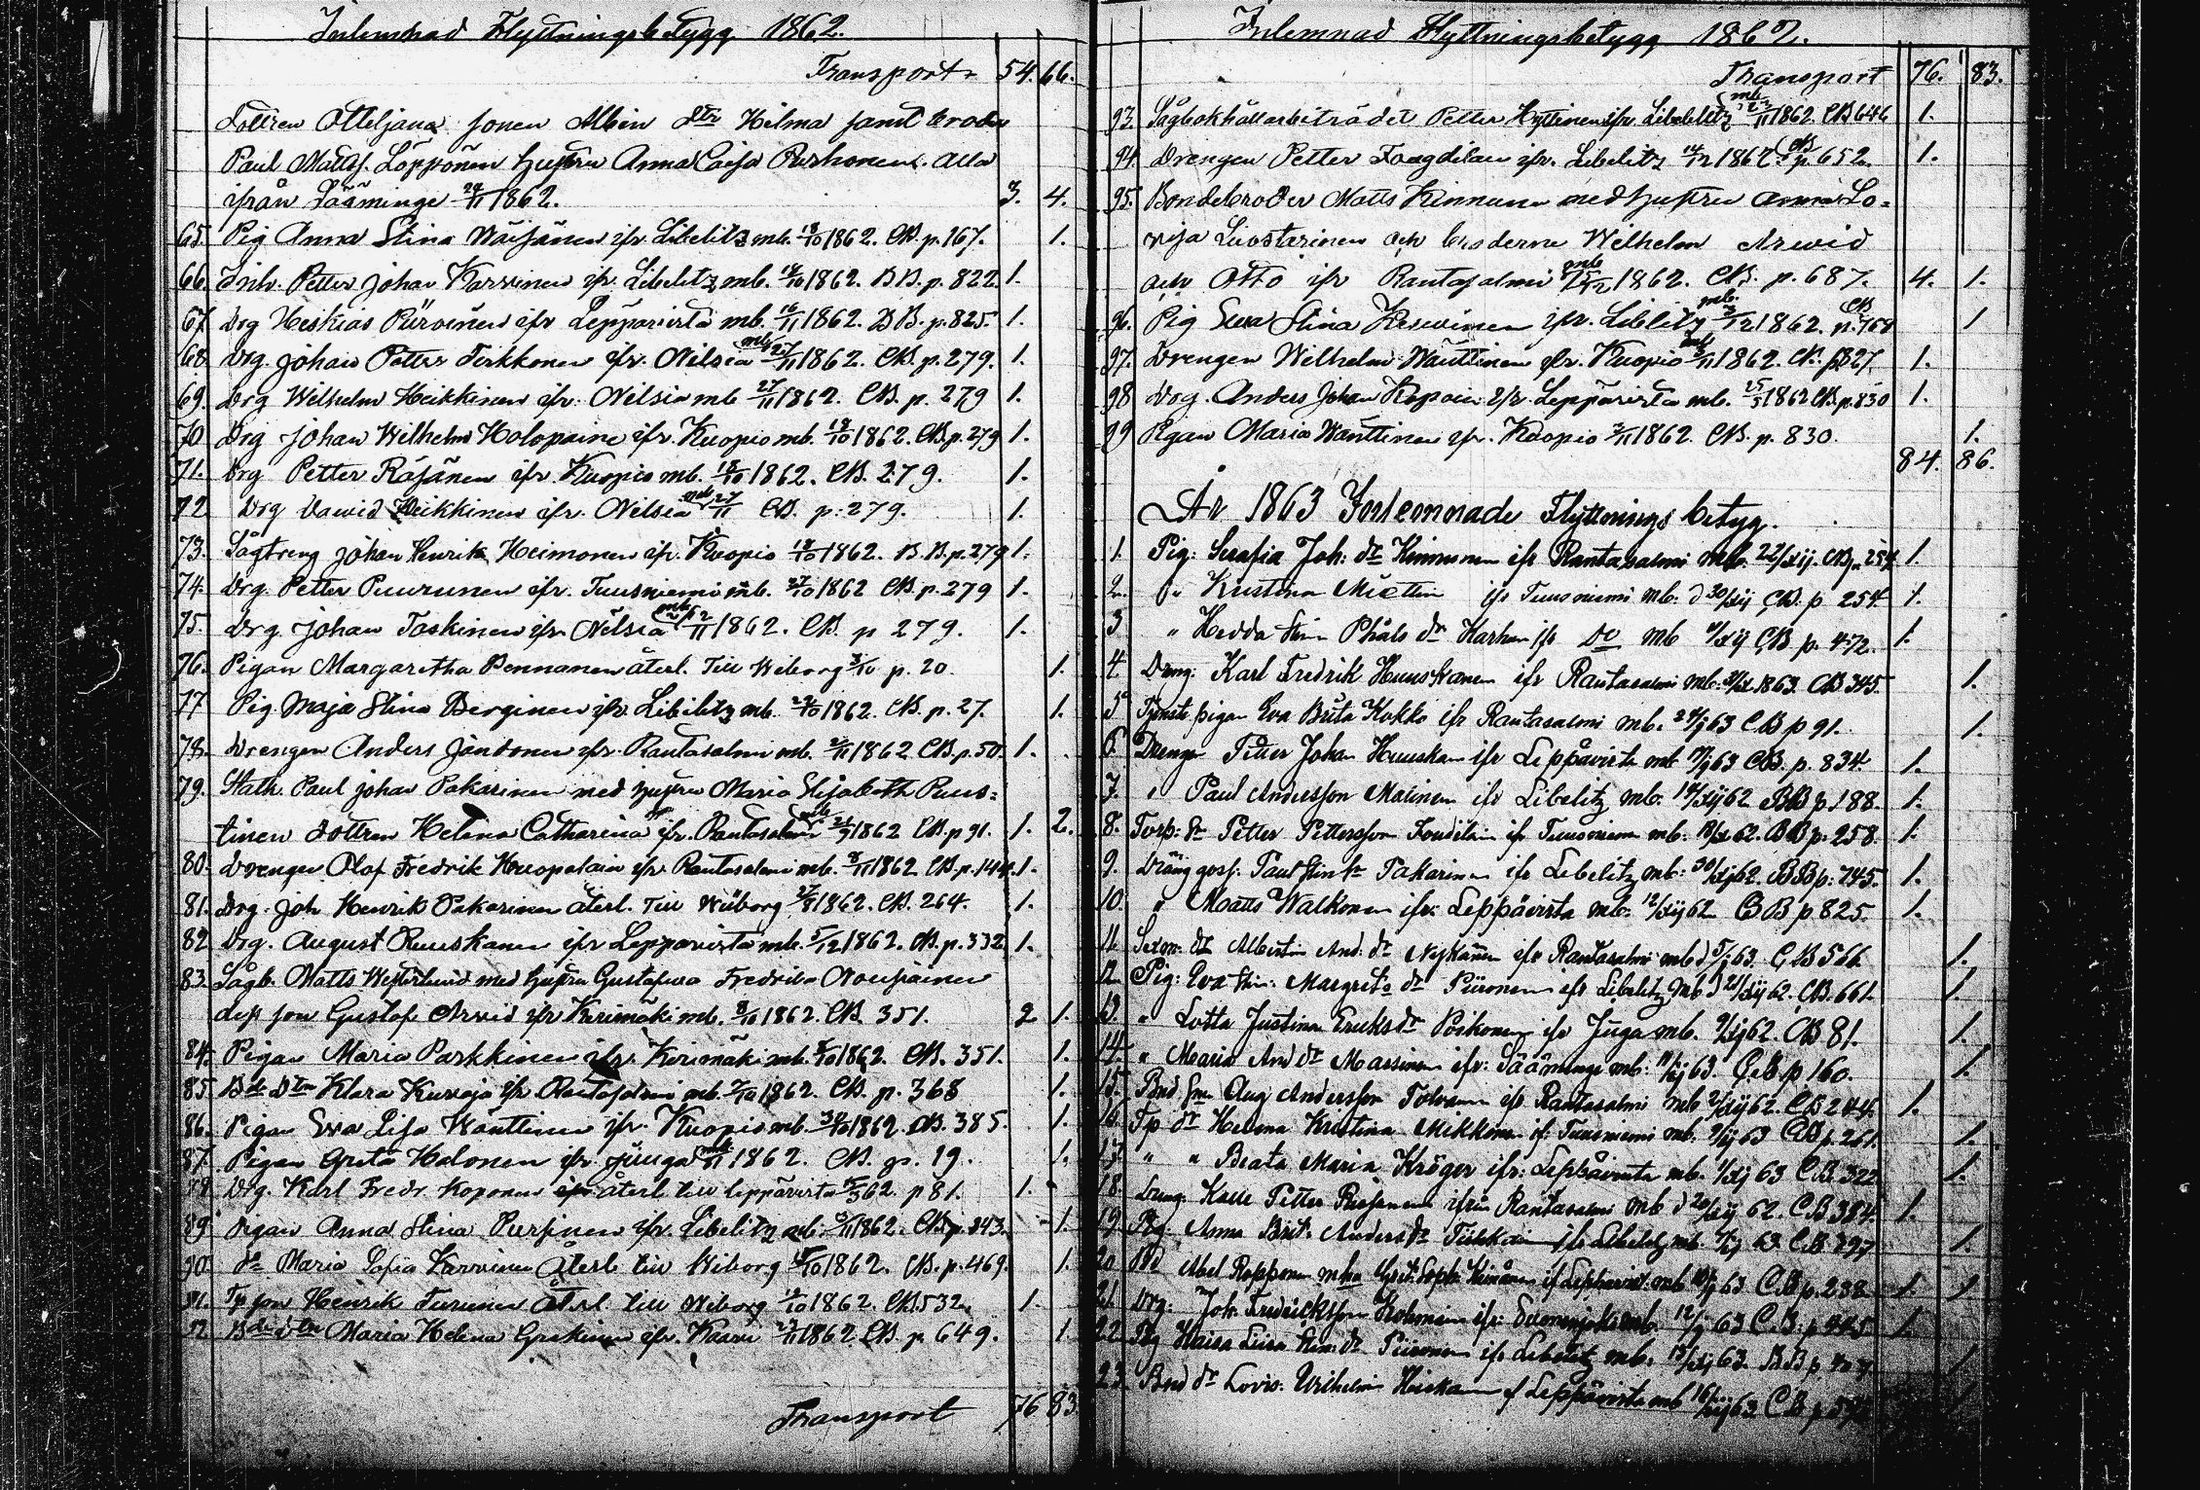 Inlemnad Flyttningsbetygg 1862.
Transport 54. 66.
Dottren Otteljana sonen Albin Dtr Hilma samt broder
Paul Matts. Löppönen hustru Anna Caisa Purhonen. alla
ifrån Sääminge 24/11 1862. 3. 4.
65. Pig Anna Stina Väisänen ifr. Libelitz mb. 18/10 1862. CB. p. 167. 1.
66. Inh. Petter Johan Karvinen ifr. Libelitz mb. 18/10 1862. BB. p. 822. 1.
67. Drg Heskias Piiroinen ifr Leppävirta mb. 16/11 1862. BB. p. 825. 1.
68. Drg. Johan Petter Tirkkonen ifr. Nilsia mb 27/11 1862. CB. p. 279. 1.
69. Drg Wilhelm Heikkinen ifr. Nilsia mb 27/11 1862. CB. p. 279 1.
70 Drg Johan Wilhelm Holopaine ifr. Kuopio mb. 18/10 1862. CB. p. 279 1.
71. Drg Petter Räsänen ifr. Kuopio mb. 18/10 1862. CB. 279. 1.
72 Drg David Heikkinen ifr. Nilsia mb 27/11 CB. p. 279. 1.
73. Sågdreng Johan Henrik Heimonen ifr. Kuopio 18/10 1862. B.B. p. 279 1.
74. Drg. Petter Puurunen ifr. Tuusniemi mb. 27/10 1862 CB. p. 279 1.
75. Drg. Johan Taskinen ifr. Nilsia mb 2/11 1862. CB. p 279. 1.
76. Pigan Margaretha Pennanen återl. till Wiborg p. 20 1.
77 Pig. Maja Stina Berginen ifr. Libilitz mb. 1862. CB. p. 27. 1.
78. Drengen Anders Jäntonen ifr. Rantasalmi mb. 1862 CB. p. 50. 1.
79. Stath. Paul Johan Pakarinen med hustru Maria Elisabeth Puus=
tinen dottren Helena Catharina ifr. Rantasalmi mb 1862 CB. p 91. 1. 2.
80. Drengen Olof Fredrik ifr. Rantasalmi mb. 1862 CB. p. 144. 1.
81. Drg. Joh Henrik Pakarinen återl. till Wiborg 1862. CB. 264. 1.
82 Drg. August Ruuskanen ifr Leppävirta mb. 5/12 1862. CB. p. 332. 1.
83. Sågb. Matts Westerlund med hustru Gustafva Fredrika Nousiainen
dess son Gustaf Arvid ifr Kerimäki mb. 1862. CB. 351. 2 1.
84. Pigan Maria Parkkinen ifr. Kerimäki mb. 1862. CB. 351. 1.
85 Bde Dtrn Klara Kurvoja ifr. Rantasalmi mb. 1862. CB. p. 368 1.
86. Pigan Eva Lisa Wänttinen ifr. Kuopio mb. 1862. CB. 385. 1.
87. Pigan Greta Holonen ifr. Juuga mb 1862. CB. p. 19. 1.
88 Drg. Karl Fredr. Koponen återl till Leppävirta 62. p 81. 1.
89 Pigan Anna Stina Pursinen ifr. Libelitz mb. 1862. CB. p. 243. 1.
90. Dr. Maria Sofia Karvinen återl till Wiborg 1862. CB. p. 469. 1.
91. Tp son Henrik Turunen återl. till Wiborg 1862. CB. 532. 1.
92 Bde dtr Maria Helena ifr. Kaavi 1862 CB. p. 649. 1.
Transport 76 83
Inlemnad Flyttningsbetygg 1862.
Transport 76. 83.
93. Sågbokhållarbiträdet Petter Hyttinen ifr Libelitz mb 23/11 1862. CB 646 1.
94. Drengen Petter ifr. Libelitz 14/12 1862. CB p. 652. 1.
95. Bondebroder Matts Kinnunen med hustru Anna Lo=
visa Luostarinen och broderne Wilhelm Arwid
och Otto ifr Rantasalmi mb 1862. CB. p. 687. 4. 1.
96. Pig Eva Stina ifr. Libelitz mb. 1862. CB p. 764 1
97. Drengen Wilhelm Wänttinen ifr. Kuopio mb 1862. CB. p 827. 1.
98 Drg. Anders Johan ifr. Leppävirta mb. 1862 CB. p. 830 1.
99 Pigan Maria Wänttinen ifr. Kuopio 1862. CB. p. 830. 1.
84. 86.
År 1863 Inlemnade Flyttnings betyg.
1. Pig: Serafia Joh: dr Kinnunen ifr Rantasalmi mb. 22/xij. CB p. 254 1.
2. " Kristina Miettin ifr Tuusniemi mb. d 30/xij CB. p 254. 1.
3 " Hedda Stin Påls dr Karhun ifr Do mb CB p. 472. 1.
4. Dreng: Karl Fredrik Huuskonen ifr Rantasalmi mb: 1863. CB 345. 1.
5 Tjenste pigan Eva Brita Kokko ifr Rantasalmi mb. 63 CB p 91. 1.
6. Drengen Petter Johan Huuskon ifr Leppävirta mb 63 CB. p. 834. 1.
7. " Paul Andersson Malinen ifr Libelitz mb. 62 BB p. 188. 1.
8. Torp: Petter Pettersson ifr Tuusniemi mb. 62. BB p. 258. 1.
9. Dräng goss. Paul Pakarinen ifr Libelitz mb: 30/xij 62. BB p. 745. 1.
10. " Matts Walkonen ifr: Leppävirta mb. 12/xij 62 BB p 825. 1.
11. Albertin And. dr Nykänen ifr Rantasalmi mb d 63. CB 566. 1.
12. Pig: Eva Stin: Margreta dr Piironen ifr Libelitz mb d 62. CB. 661. 1.
13. " Lotta Justina Eriks dr Poikonen ifr Juga mb. 62. CB 81. 1.
14. " Maria And dr Massinen ifr: Sääminge mb: 63. CB. p 160. 1.
15. Bnd son Aug Andersson Tolvanen ifr Rantasalmi mb 62. CB 244. 1.
16. Tp dr Helena Kristina Mikkonen if: Tuusniemi mb. 63 CB p. 261. 1.
17. " " Beata Maria Kröger ifr: Leppävirta mb. 63 C.B. 322. 1.
18. Dreng Kalle Petter ifrån Rantasalmi mb d 62. C.B 384. 1.
19. Pig Anna Brit. Anders dr ifr Libelitz mb. 63. C.B. 297. 1.
20 Abel Ropponen ifr Leppävirt: mb 63 C.B p. 288. 1. 1
21. Drg: Joh: Fredriksson ifr: mb. 12/ 63 C.B. p 445. 1.
22. Pig Kaisa Lisa Hin: dr Piironen ifr Libelitz mb. 63. BB p 1
23. Bnd dr Lovis: Wilhelmin if Leppävirta mb 16/xij 62 C.B p 1